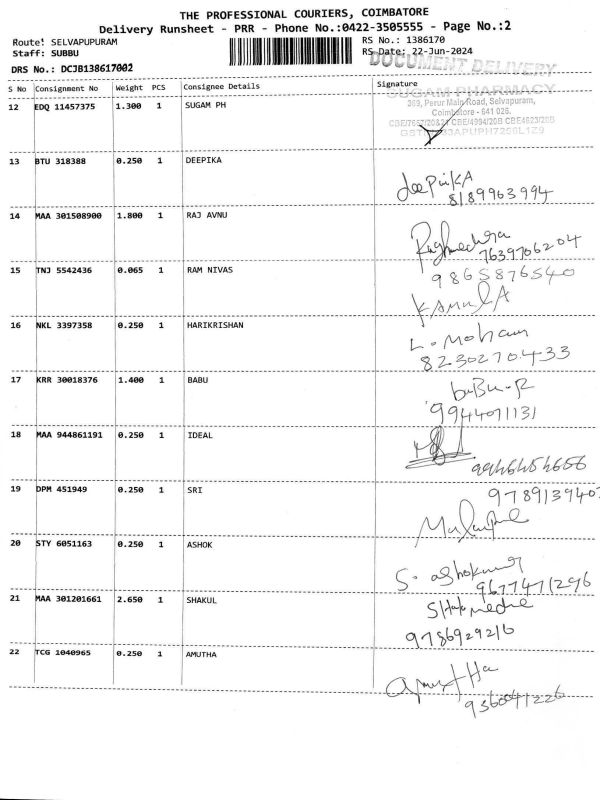 THE PROFESSIONAL COURIERS, COIMBATORE
Delivery Runsheet - PRR - Phone No.:0422-3505555 - Page No.:2
Route: SELVAPUPURAM RS No.: 1386170
Staff: SUBBU RS Date: 22-Jun-2024
DRS No.: DCJB138617002 DOCUMENT DELIVERY
S No Consignment No Weight PCS Consignee Details Signature
SUGAM PHARMACY
12 EDQ 11457375 1.300 1 SUGAM PH
369, Perur Main Road, Selvapuram,
Coimbatore - 641 026.
13 BTU 318388 0.250 1 DEEPIKA
deepikA
8189963994
14 MAA 301508900 1.800 1 RAJ AVNU
7639706204
15 TNJ 5542436 0.065 1 RAM NIVAS
9865876540
16 NKL 3397358 0.250 1 HARIKRISHAN
8230270433
17 KRR 30018376 1.400 1 BABU
baBu-R
9944071131
18 MAA 944861191 0.250 1 IDEAL
19 DPM 451949 0.250 1 SRI
20 STY 6051163 0.250 1 ASHOK
S. ashokumar
9677471296
21 MAA 301201661 2.650 1 SHAKUL
9786929216
22 TCG 1040965 0.250 1 AMUTHA
amuttHa
9360041226